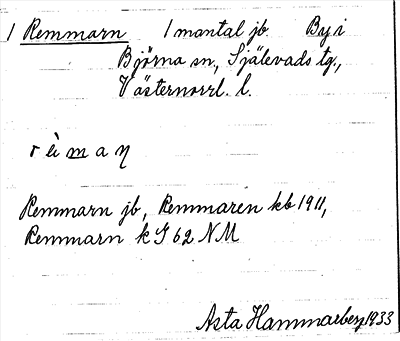 1 Remmarn 1 mantal jb. By i
Björna sn., Själevads tg.,
Västernorrl. l.
r è m a ŋ
Remmarn jb, Remmaren kb 1911,
Remmarn k G 62 NM
Asta Hammarberg 1933